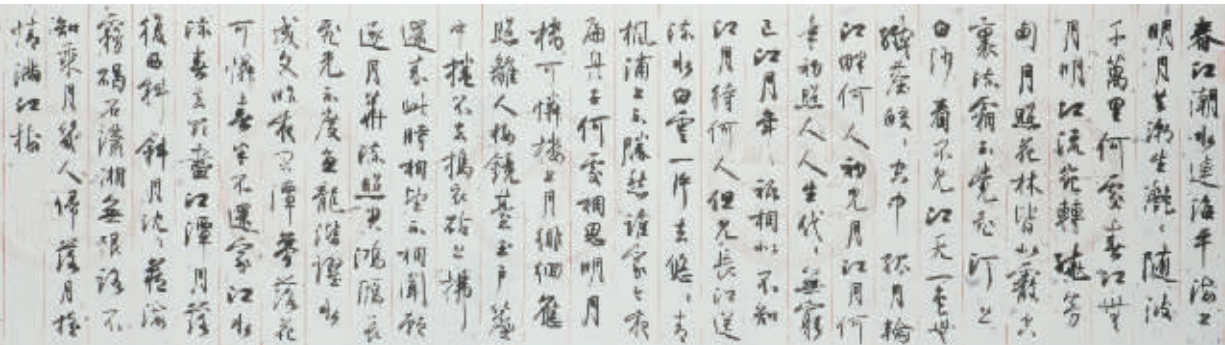 春江潮水連海平海上
明月共潮生灩〻随波
千萬里何處春江無
月明江流宛轉繞芳
甸月照花林皆似霰空
裏流霜不覺飛汀上
白沙看不見江天一色無
纖塵皎〻空中孤月輪
江畔何人初見月江月何
年初照人人生代〻無窮
已江月年〻祗相似不知
江月待何人但見長江送
流水白雲一片去悠〻青
楓浦上不勝愁誰家今夜
扁舟子何處相思明月
樓可憐樓上月徘徊應
照離人妝鏡臺玉戶簾
中捲不去搗衣砧上拂
還來此時相望不相聞願
逐月華流照君鴻雁長
飛光不度魚龍潛躍水
成文昨夜閒潭夢落花
可憐春半不還家江水
流春去欲盡江潭月落
復西斜斜月沉〻藏海
霧碣石瀟湘無限路不
知乘月幾人歸落月搖
情滿江樹